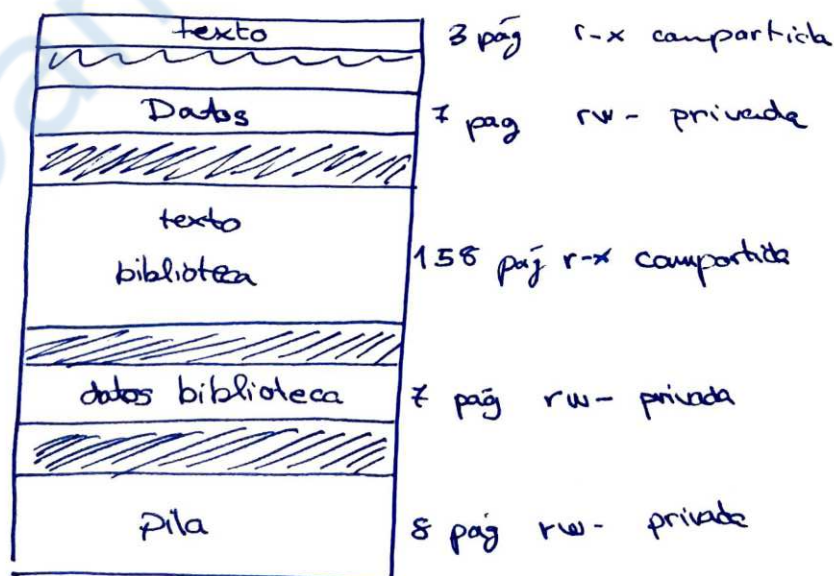 texto 3 pág r-x compartida
Datos 7 pag rw- privada
texto
biblioteca 158 pág r-x compartida
datos biblioteca 7 pág rw- privada
Pila 8 pág rw- privada